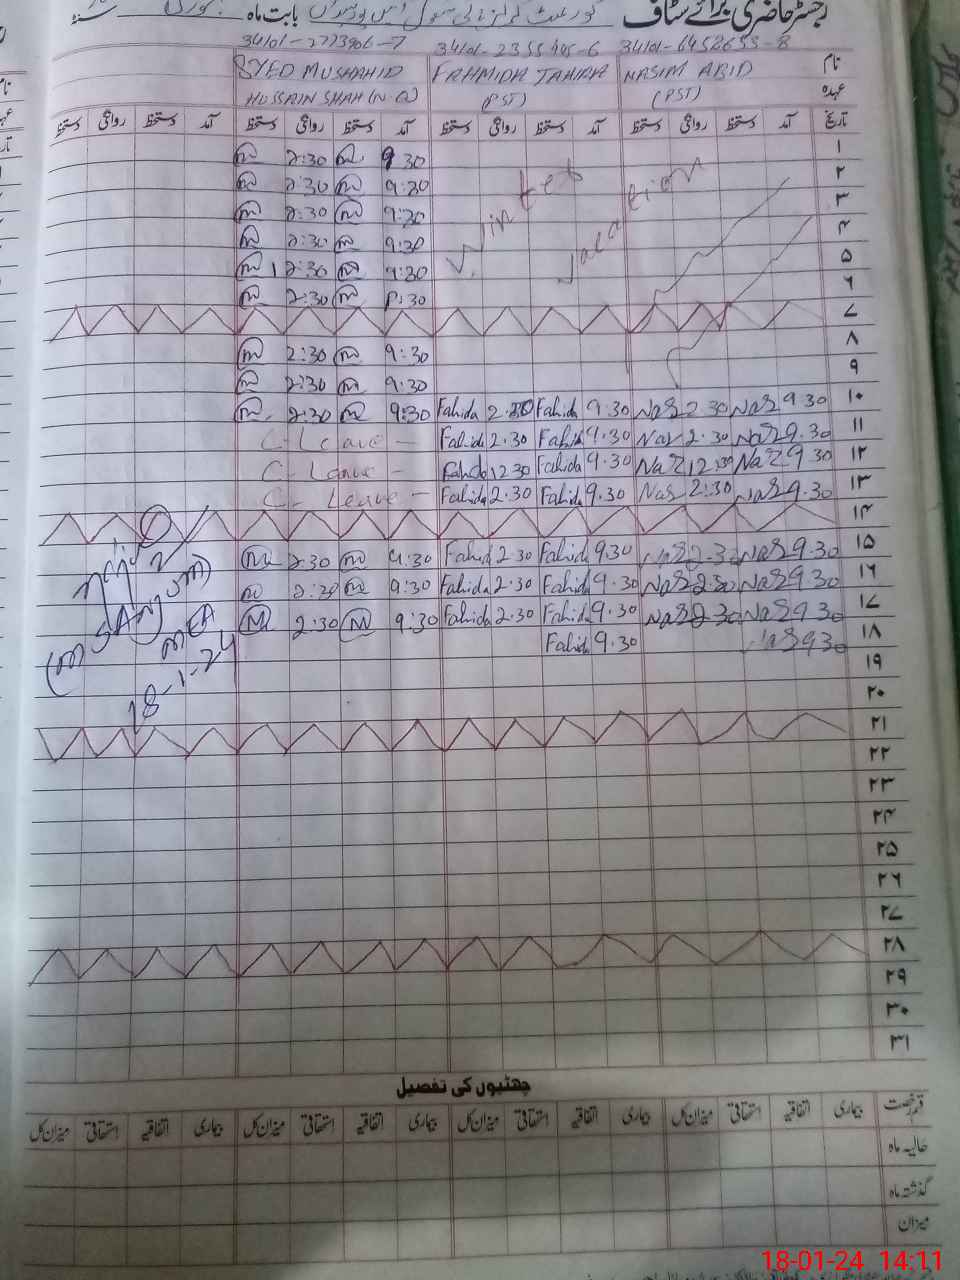 رجسٹر حاضری برائے سٹاف گورنمنٹ گرلز ہائی سکول بابت ماہ جنوری سنہ
34101-2773906-7 34101-2355495-6 34101-6452653-8
نام NASIM ABID FAHMIDA TAHIRA SYED MUSHAHID
عہدہ (PST) (PST) HUSSAIN SHAH (N.Q)
تاریخ آمد دستخط روانگی دستخط آمد دستخط روانگی دستخط آمد دستخط روانگی دستخط آمد دستخط روانگی دستخط
2:30 9:30 ۱
2:30 9:30 Winter ۲
2:30 9:30 Vacation ۳
2:30 9:30 ۴
2:30 9:30 ۵
2:30 9:30 ۶
۷
2:30 9:30 ۸
2:30 9:30 ۹
2:30 9:30 Fahida 2.30 Fahida 9.30 Nas 2.30 Nas 9.30 ۱۰
C-Leave - Fahida 2.30 Fahida 9.30 Nas 2.30 Nas 9.30 ۱۱
C-Leave - Fahida 2.30 Fahida 9.30 Nas 12.30 Nas 9.30 ۱۲
C-Leave - Fahida 2.30 Fahida 9.30 Nas 2:30 Nas 9.30 ۱۳
۱۴
m 2:30 m 9:30 Fahid 2.30 Fahida 9.30 Nas 2.30 Nas 9.30 ۱۵
m 2:30 m 9:30 Fahida 2.30 Fahida 9.30 Nas 2.30 Nas 9.30 ۱۶
M 2:30 M 9:30 Fahida 2.30 Fahida 9.30 Nas 2.30 Nas 9.30 ۱۷
Fahida 9.30 Nas 9.30 ۱۸
MEA
18-1-24
۱۹
۲۰
۲۱
۲۲
۲۳
۲۴
۲۵
۲۶
۲۷
۲۸
۲۹
۳۰
۳۱
چھٹیوں کی تفصیل
قسم رخصت بیماری اتفاقیہ استحقاقی میزان کل بیماری اتفاقیہ استحقاقی میزان کل بیماری اتفاقیہ استحقاقی میزان کل بیماری اتفاقیہ استحقاقی میزان کل
حالیہ ماہ
گذشتہ ماہ
میزان
18-01-24 14:11